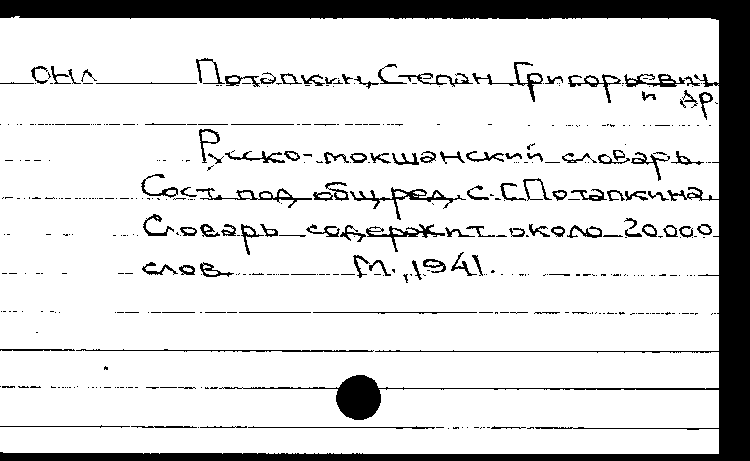 ОНЛ Потапкин, Степан Григорьевич
и др.
Русско-мокшанский словарь.
Сост. под общ. ред. С.Г. Потапкина.
Словарь содержит около 20.000
слов. М., 1941.